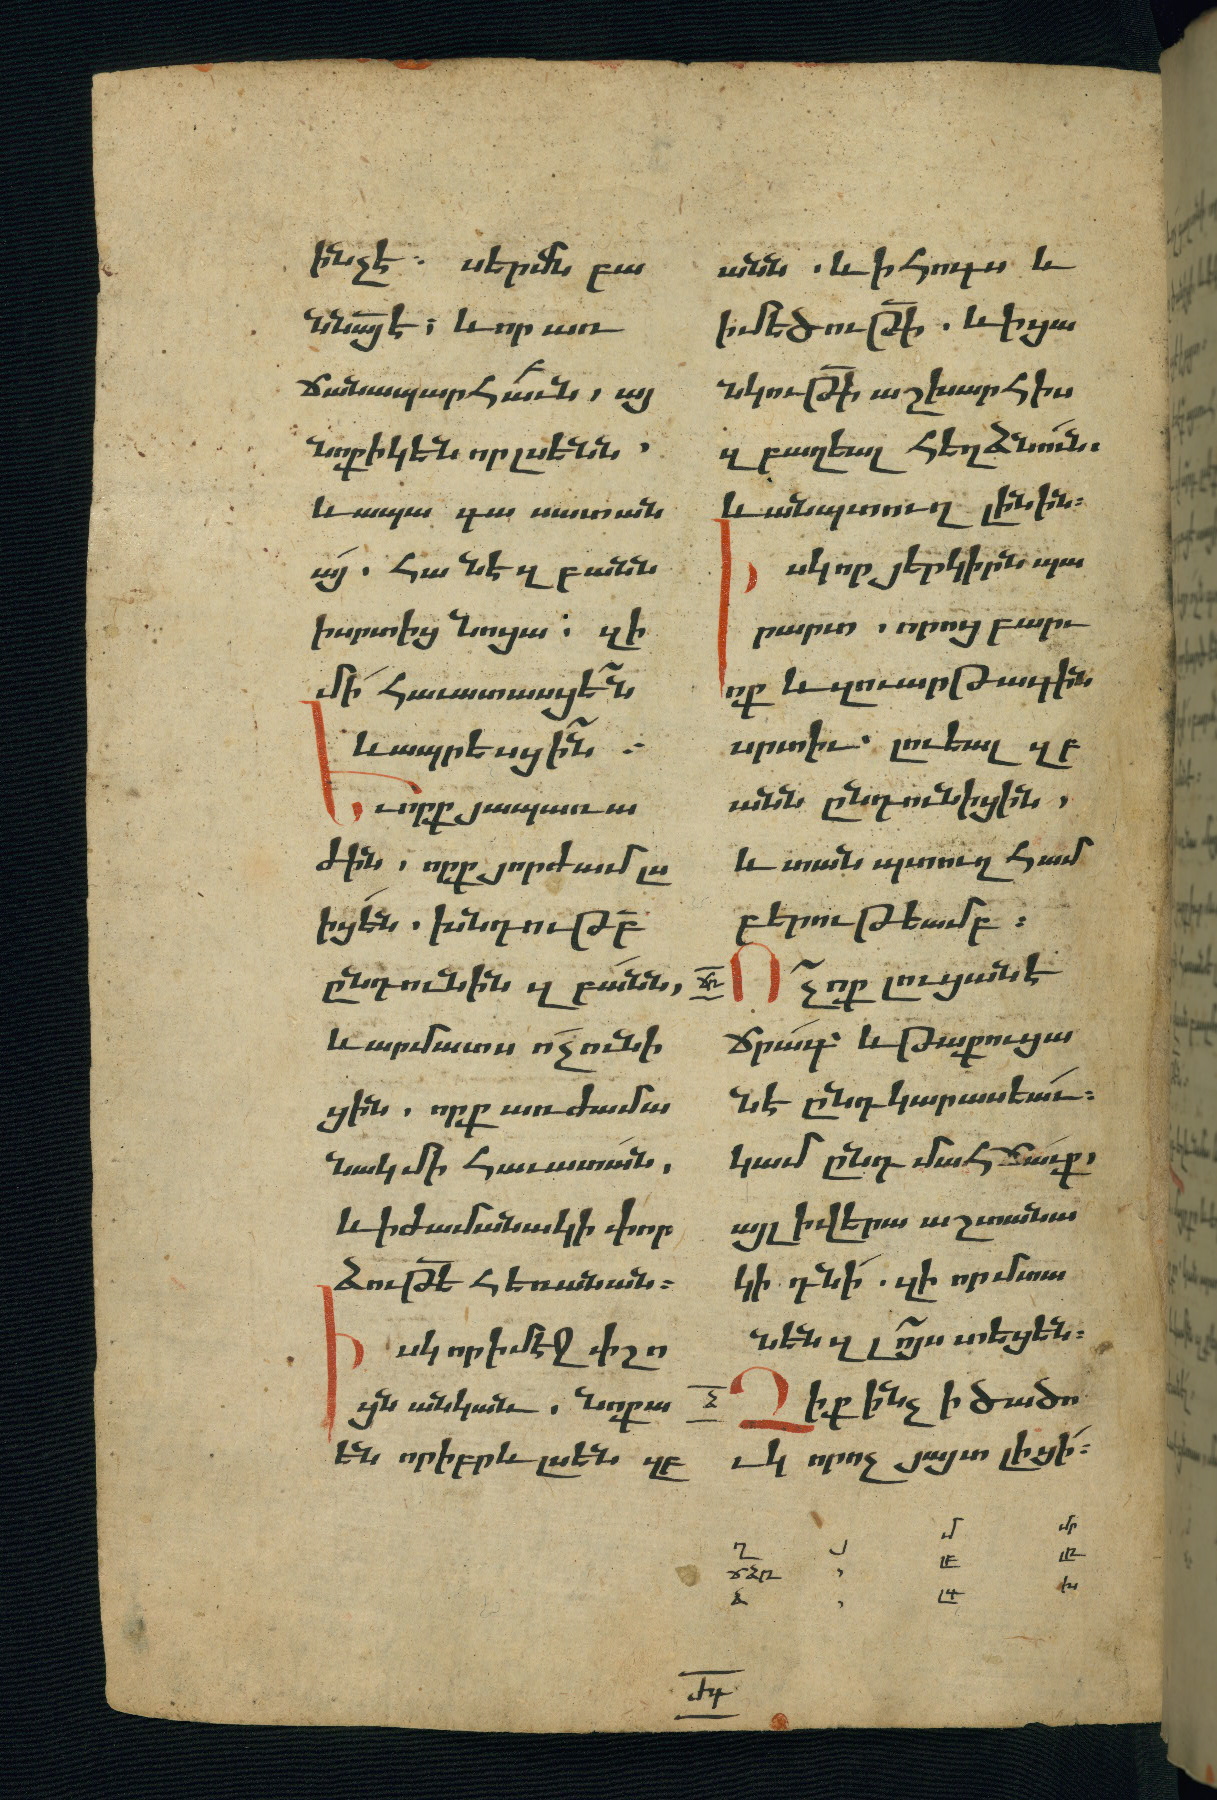 ինչ է։ սերմն բա
նն ա՟յ է։ և որ առ
ճանապարհաւն, այ
նոքիկ են որ լսենն,
և ապա գա սատան
այ. հանէ զբանն
ի սրտից նոցա. զի
մի՛ հաւատասցեն
և ապրեսցին։
Եւ որք յապառա
ժին, որք յորժամ լս
իցեն. խնդութ՟բ
ընդունին զբանն,
և արմատս ոչ ունի
ցին. որք առ ժամա
նակ մի հաւատան,
և ի ժամանակի փոր
ձութ՟ե հեռանան։
Իսկ որ ի մէջ փշո
յն անկաւ. նոքա
են որ իբրև լսեն զբ
անն. և ի հոգս և
ի մեծութ՟ի. և ի ցա
նկութ՟ի աշխարհիս
զբաղեալ հեղձնուն.
և անպտուղ լինին։
Իսկ որ յերկիրն պա
րարտ, որոց բարւ
ոք և զուարթագին
սրտիւ. լուեալ զբ
անն ընդունիցին,
և տան պտուղ համ
բերութեամբ։
Ոչ ոք լուցանէ
ճրագ՝ և թաքուցա
նէ ընդ կարասեաւ։
կամ ընդ մահճաւք,
այլ ի վերա աշտանա
կի դնի. զի որ մտա
նեն զլոյս տեսցեն։
Չիք ինչ ի ծածո
ւկ որ ոչ յայտ լիցի։